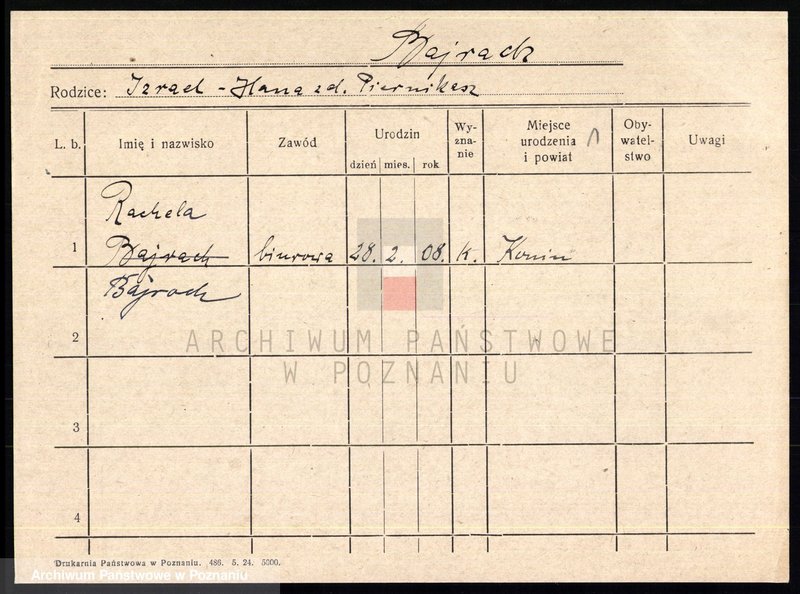 Bajrach
Rodzice: Izrael - Hana zd. Piernikasz
L. b. Imię i nazwisko Zawód Urodzin dzień mies. rok Wy-zna-nie Miejsce urodzenia i powiat Oby-watel-stwo Uwagi
Rachela
1 Bajrach biurowa 28. 2. 08. K. Konin
Bajroch
2
ARCHIWUM PAŃSTWOWE
W POZNANIU
3
4
Drukarnia Państwowa w Poznaniu. 486. 5. 24. 5000.
Archiwum Państwowe w Poznaniu